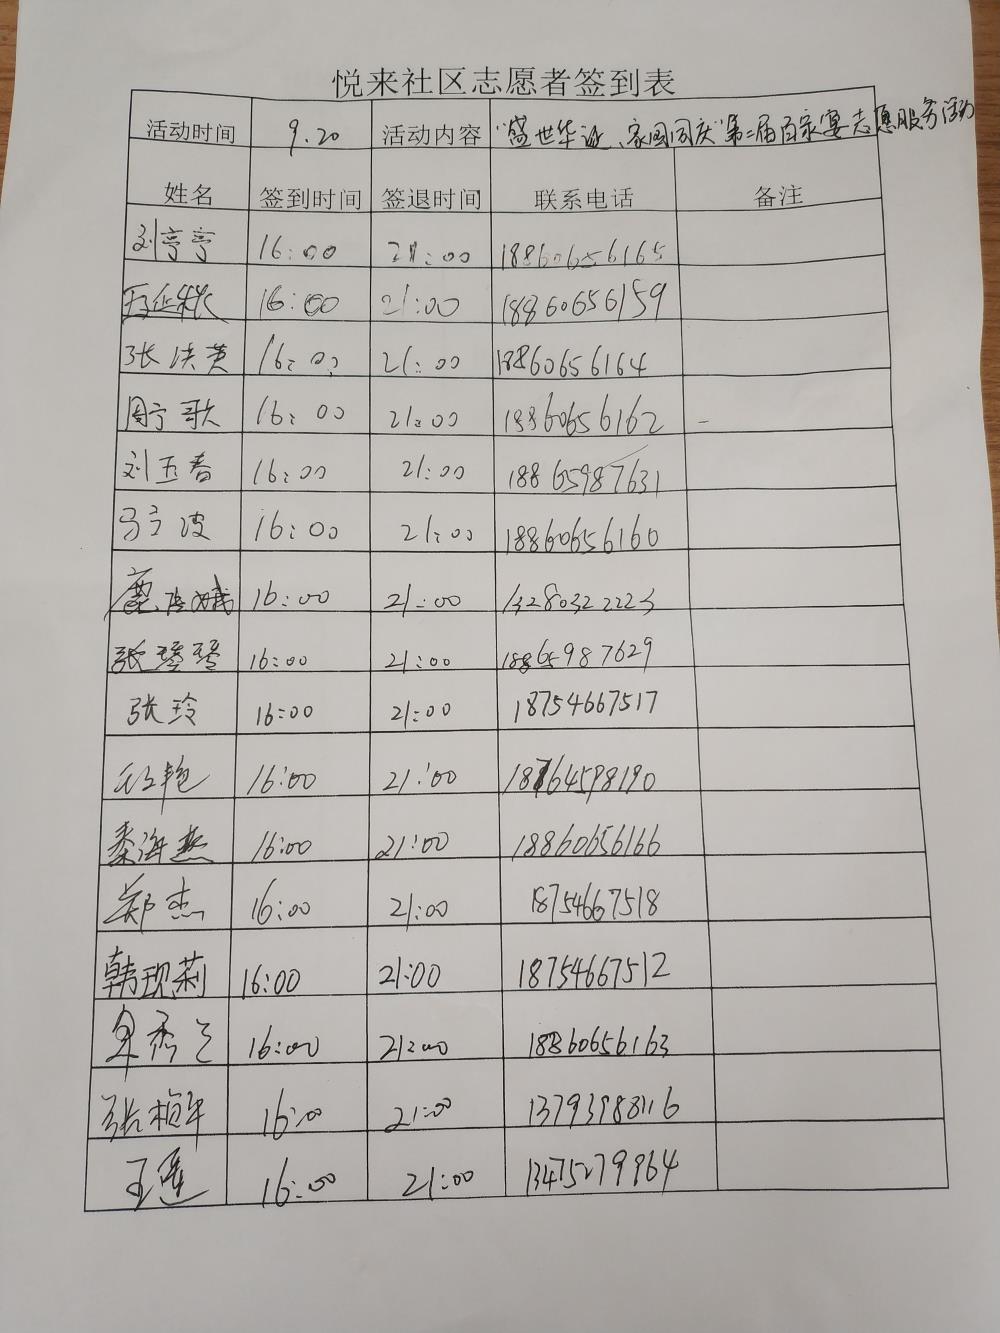 悦来社区志愿者签到表
活动时间 9.20 活动内容 "盛世华诞、家国同庆"第二届百家宴志愿服务活动
姓名 签到时间 签退时间 联系电话 备注
刘亭亭 16:00 21:00 18860656165
16:00 21:00 18860656159
张洪英 16:00 21:00 18860656164
周宁歌 16:00 21:00 18860656162 -
刘玉春 16:00 21:00 18865987631
马宁波 16:00 21:00 18860656160
16:00 21:00 13280322223
张瑟瑟 16:00 21:00 18865987629
张玲 16:00 21:00 18754667517
16:00 21:00 18764598190
秦海燕 16:00 21:00 18860656166
郑杰 16:00 21:00 18754667518
韩现莉 16:00 21:00 18754667512
16:00 21:00 18860656163
张桢华 16:00 21:00 13793988116
王莲 16:00 21:00 13475279864